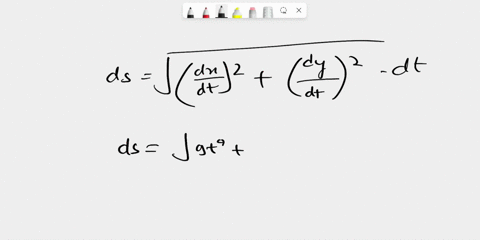 ds = √((dx/dt)² + (dy/dt)²) · dt
ds = √9t⁹ +